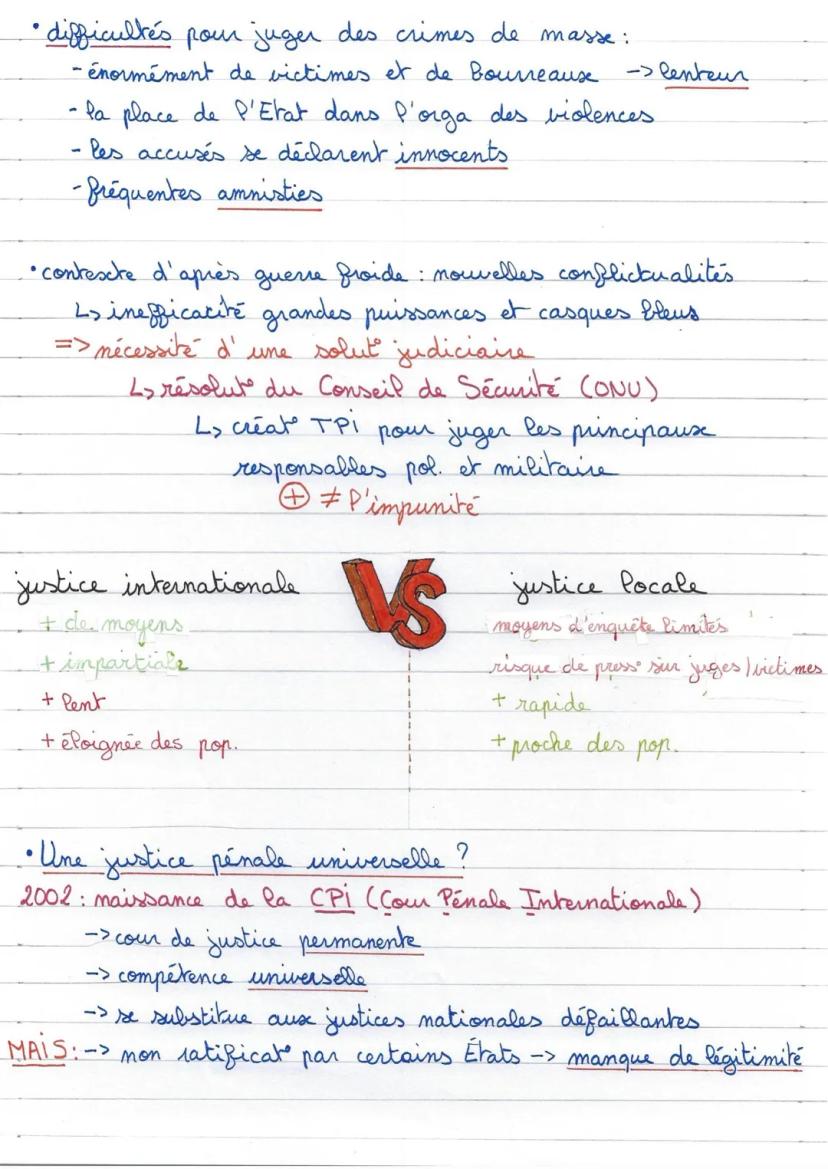 • difficultés pour juger des crimes de masse :
- énormément de victimes et de Bourreaux -> lenteur
- la place de l'Etat dans l'orga des violences
- les accusés se déclarent innocents
- fréquentes amnisties
• contexte d'après guerre froide : nouvelles conflictualités
↳ inefficacité grandes puissances et casques bleus
=> nécessité d'une solut° judiciaire
↳ résolut° du Conseil de Sécurité (ONU)
↳ créat° TPI pour juger les principaux
responsables pol. et militaire
⊕ ≠ l'impunité
justice internationale VS justice locale
+ de moyens
moyens d'enquête limités
+ impartiale
risque de press° sur juges/victimes
+ lent
+ rapide
+ éloignée des pop.
+ proche des pop.
• Une justice pénale universelle ?
2002 : naissance de la CPI (Cour Pénale Internationale)
-> cour de justice permanente
-> compétence universelle
-> se substitue aux justices nationales défaillantes
MAIS : -> non ratificat° par certains États -> manque de légitimité